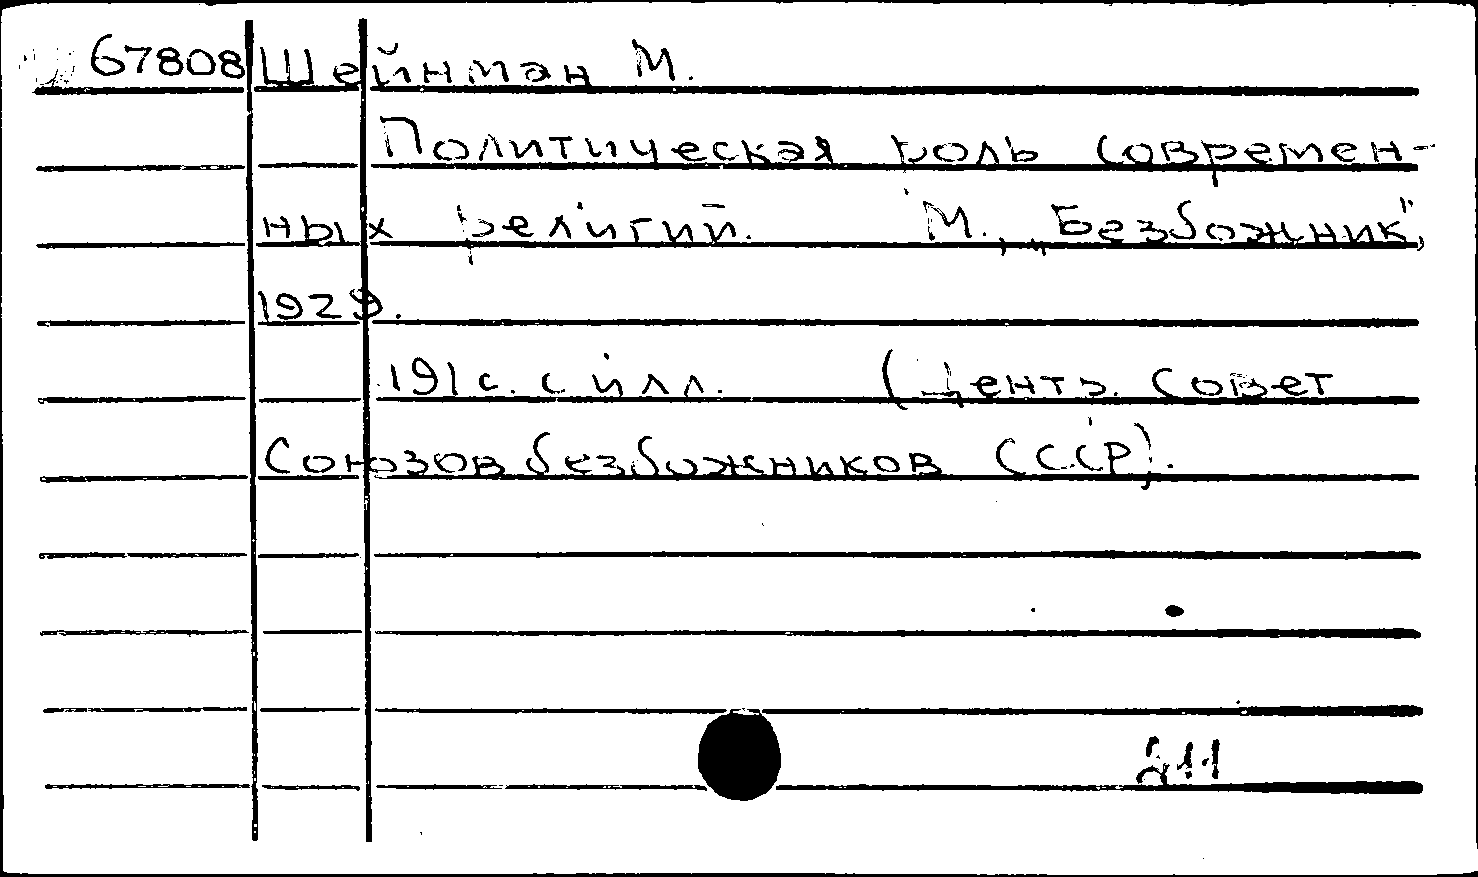 67808 Шейнман М.
Политическая роль современ-
ных религий. М., „Безбожник",
1929.
191 с. с илл. (Центр. Совет
Союзов безбожников СССР).
211